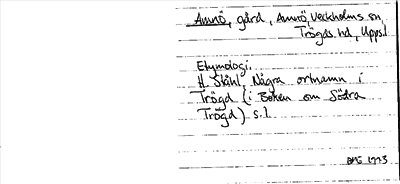 Annö, gård, Annö, Veckholms sn,
Trögds hd, Uppsl
Etymologi:
H. Ståhl, Några ortnamn i
Trögd (i: Boken om Södra
Trögd) s. 1
1973